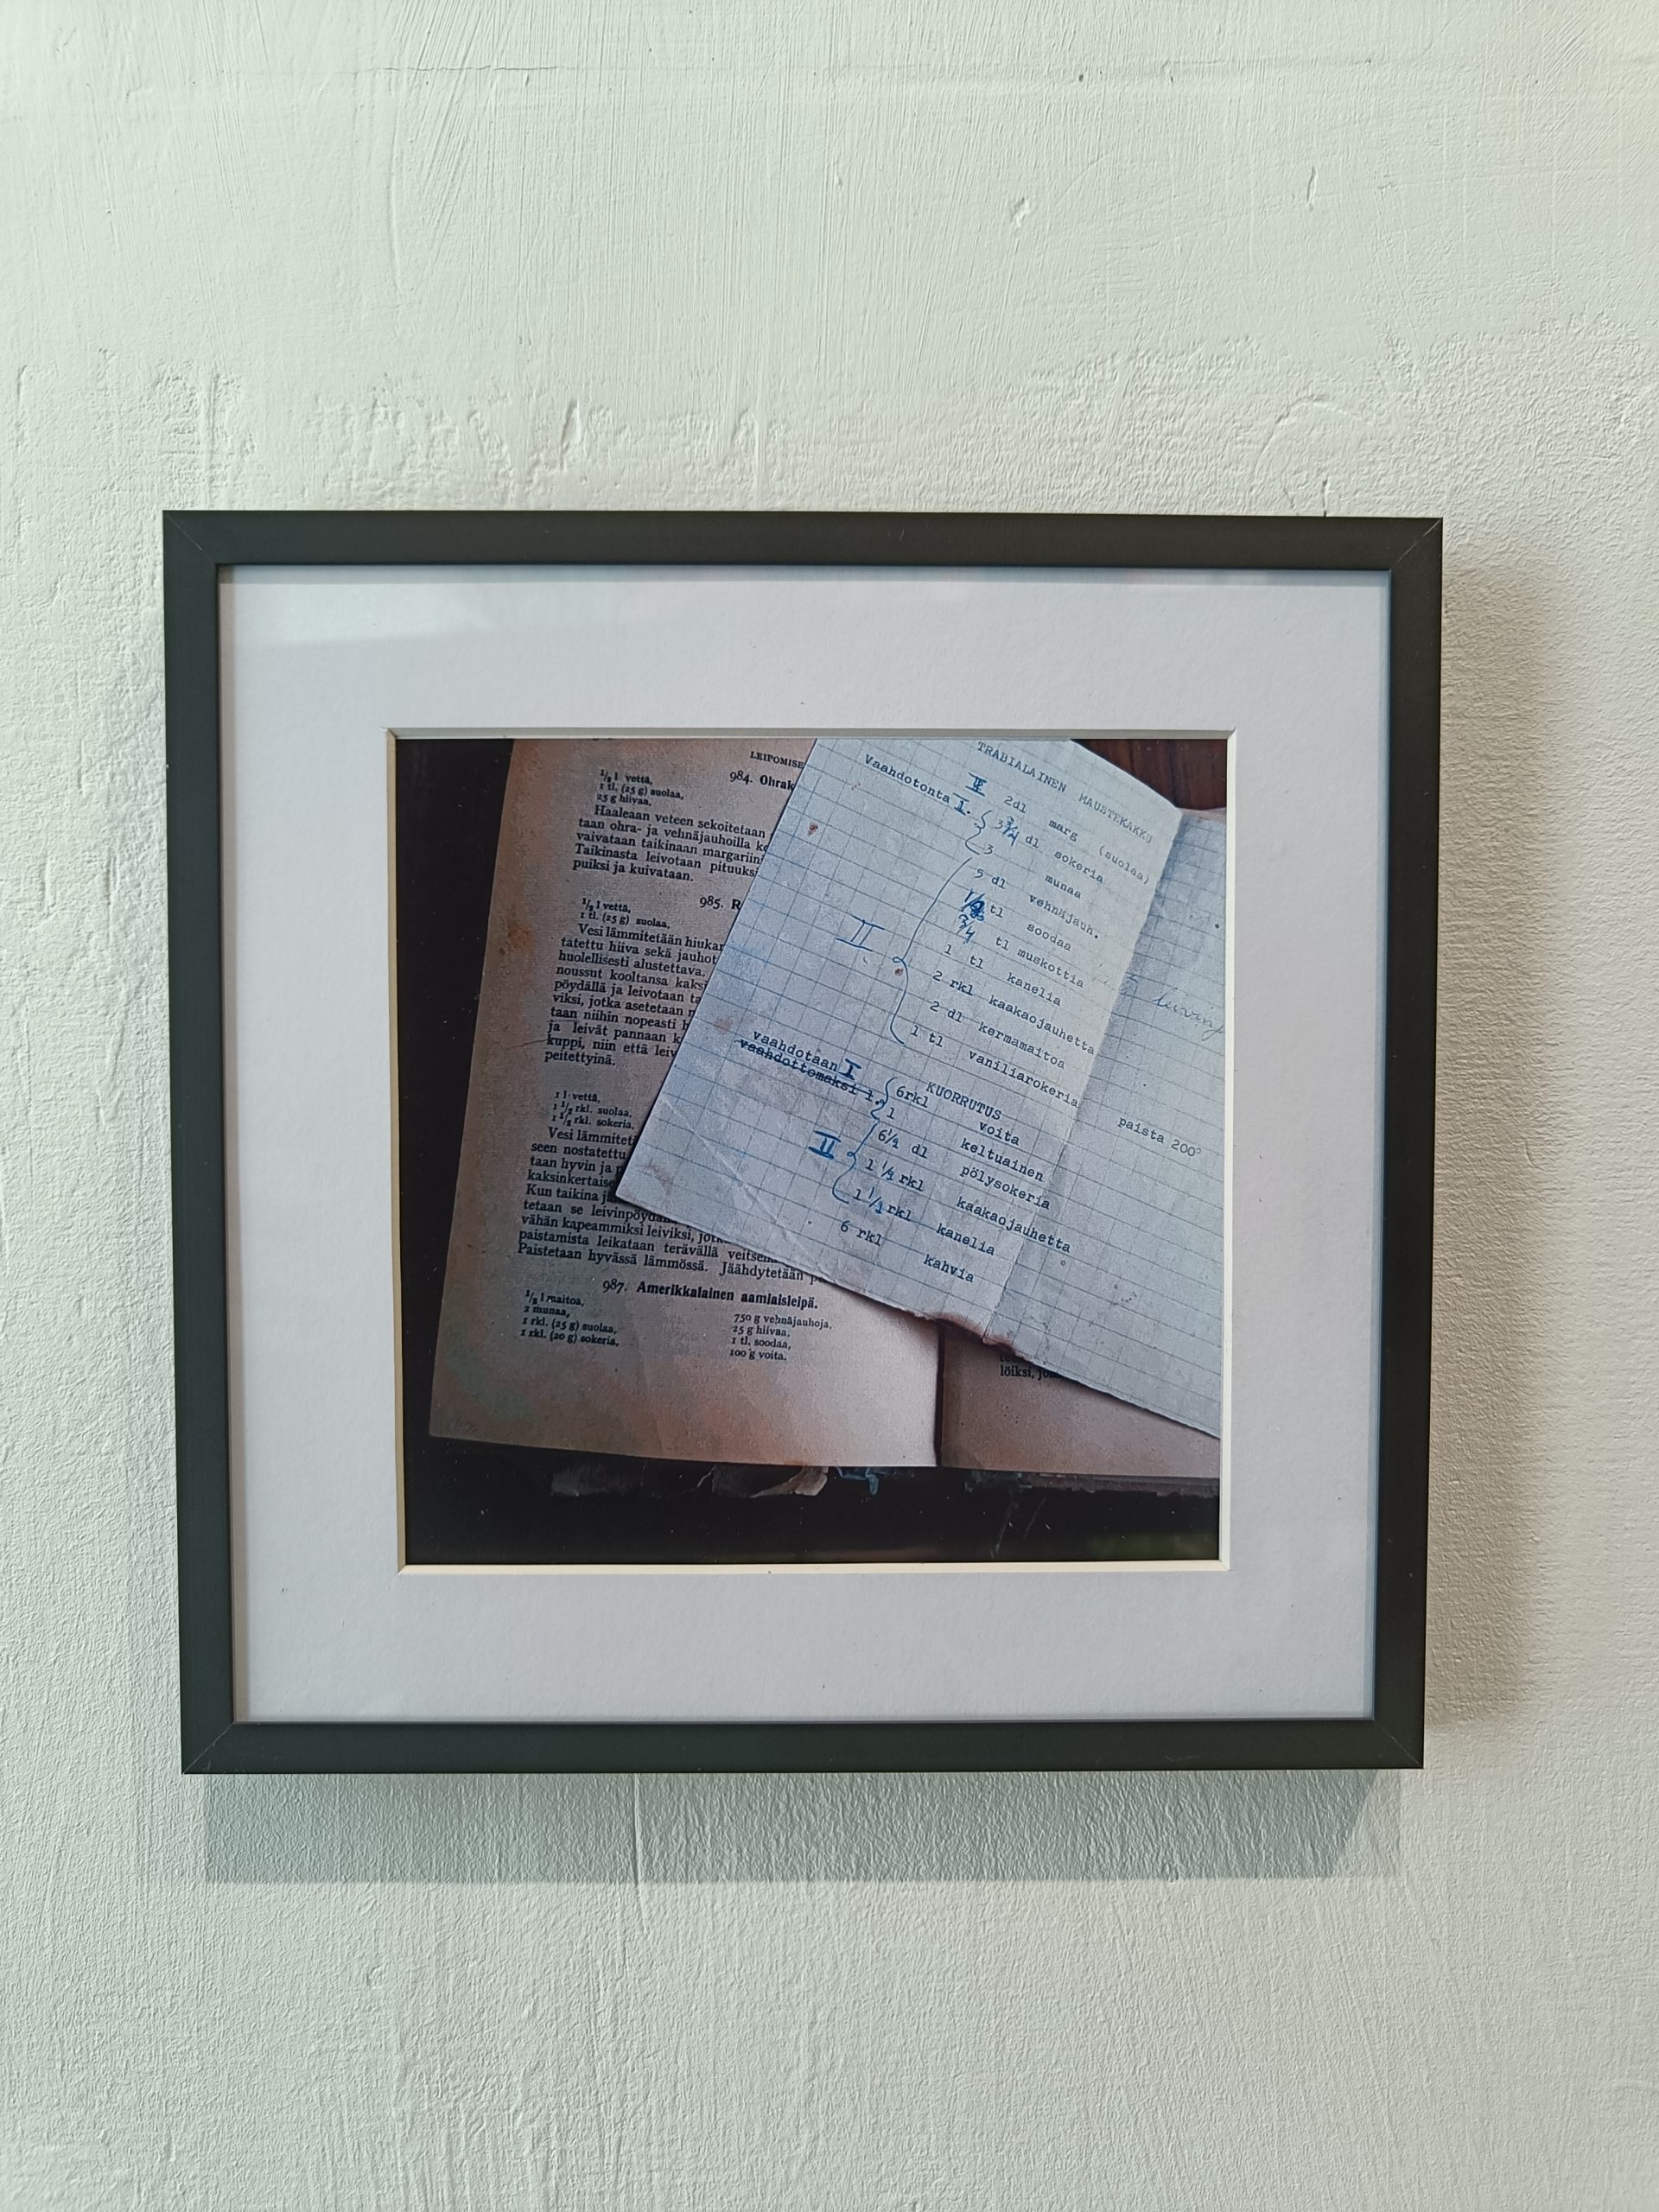 LEIPOMISE
984. Ohrak
1/2 l vettä,
1 tl. (25 g) suolaa,
25 g hiivaa.
Haaleaan veteen sekoitetaan
taan ohra- ja vehnäjauhoilla ko
vaivataan taikinaan margariini
Taikinasta leivotaan pituuks
puiksi ja kuivataan.
985. R
1/2 l vettä,
1 tl. (25 g) suolaa,
Vesi lämmitetään hiukan
tatettu hiiva sekä jauhot
huolellisesti alustettava.
noussut kooltansa kaksi
pöydällä ja leivotaan ta
viksi, jotka asetetaan
taan niihin nopeasti
ja leivät pannaan k
kuppi, niin että leiv
peitettyinä.
1 l vettä,
1 1/2 rkl. suolaa,
1 1/2 rkl. sokeria,
Vesi lämmitet
seen nostatettu
taan hyvin ja
kaksinkertaise
Kun taikina j
tetaan se leivinpöydä
vähän kapeammiksi leiviksi, jotk
paistamista leikataan terävällä veitse
Paistetaan hyvässä lämmössä. Jäähdytetään p
987. Amerikkalainen aamiaisleipä.
1/2 l maitoa,
2 munaa,
1 rkl. (25 g) suolaa,
1 rkl. (20 g) sokeria,
750 g vehnäjauhoja,
25 g hiivaa,
1 tl. soodaa,
100 g voita.
TRABIALAINEN MAUSTEKAKKU
II 2dl marg (suolaa)
Vaahdotonta I. 3 3/4 dl sokeria
3 munaa
5 dl vehnäjauh.
1/2 tl soodaa
II 3/4 tl muskottia
1 tl kanelia
2 rkl kaakaojauhetta
2 dl kermamaitoa
1 tl vaniliarokeria
KUORRUTUS
vaahdotaan I 6rkl voita
vaahdottomaksi 1. 1 keltuainen
6 1/4 dl pölysokeria
II 1 1/4 rkl kaakaojauhetta
1 1/4 rkl kanelia
6 rkl kahvia
paista 200°
löiksi, jo